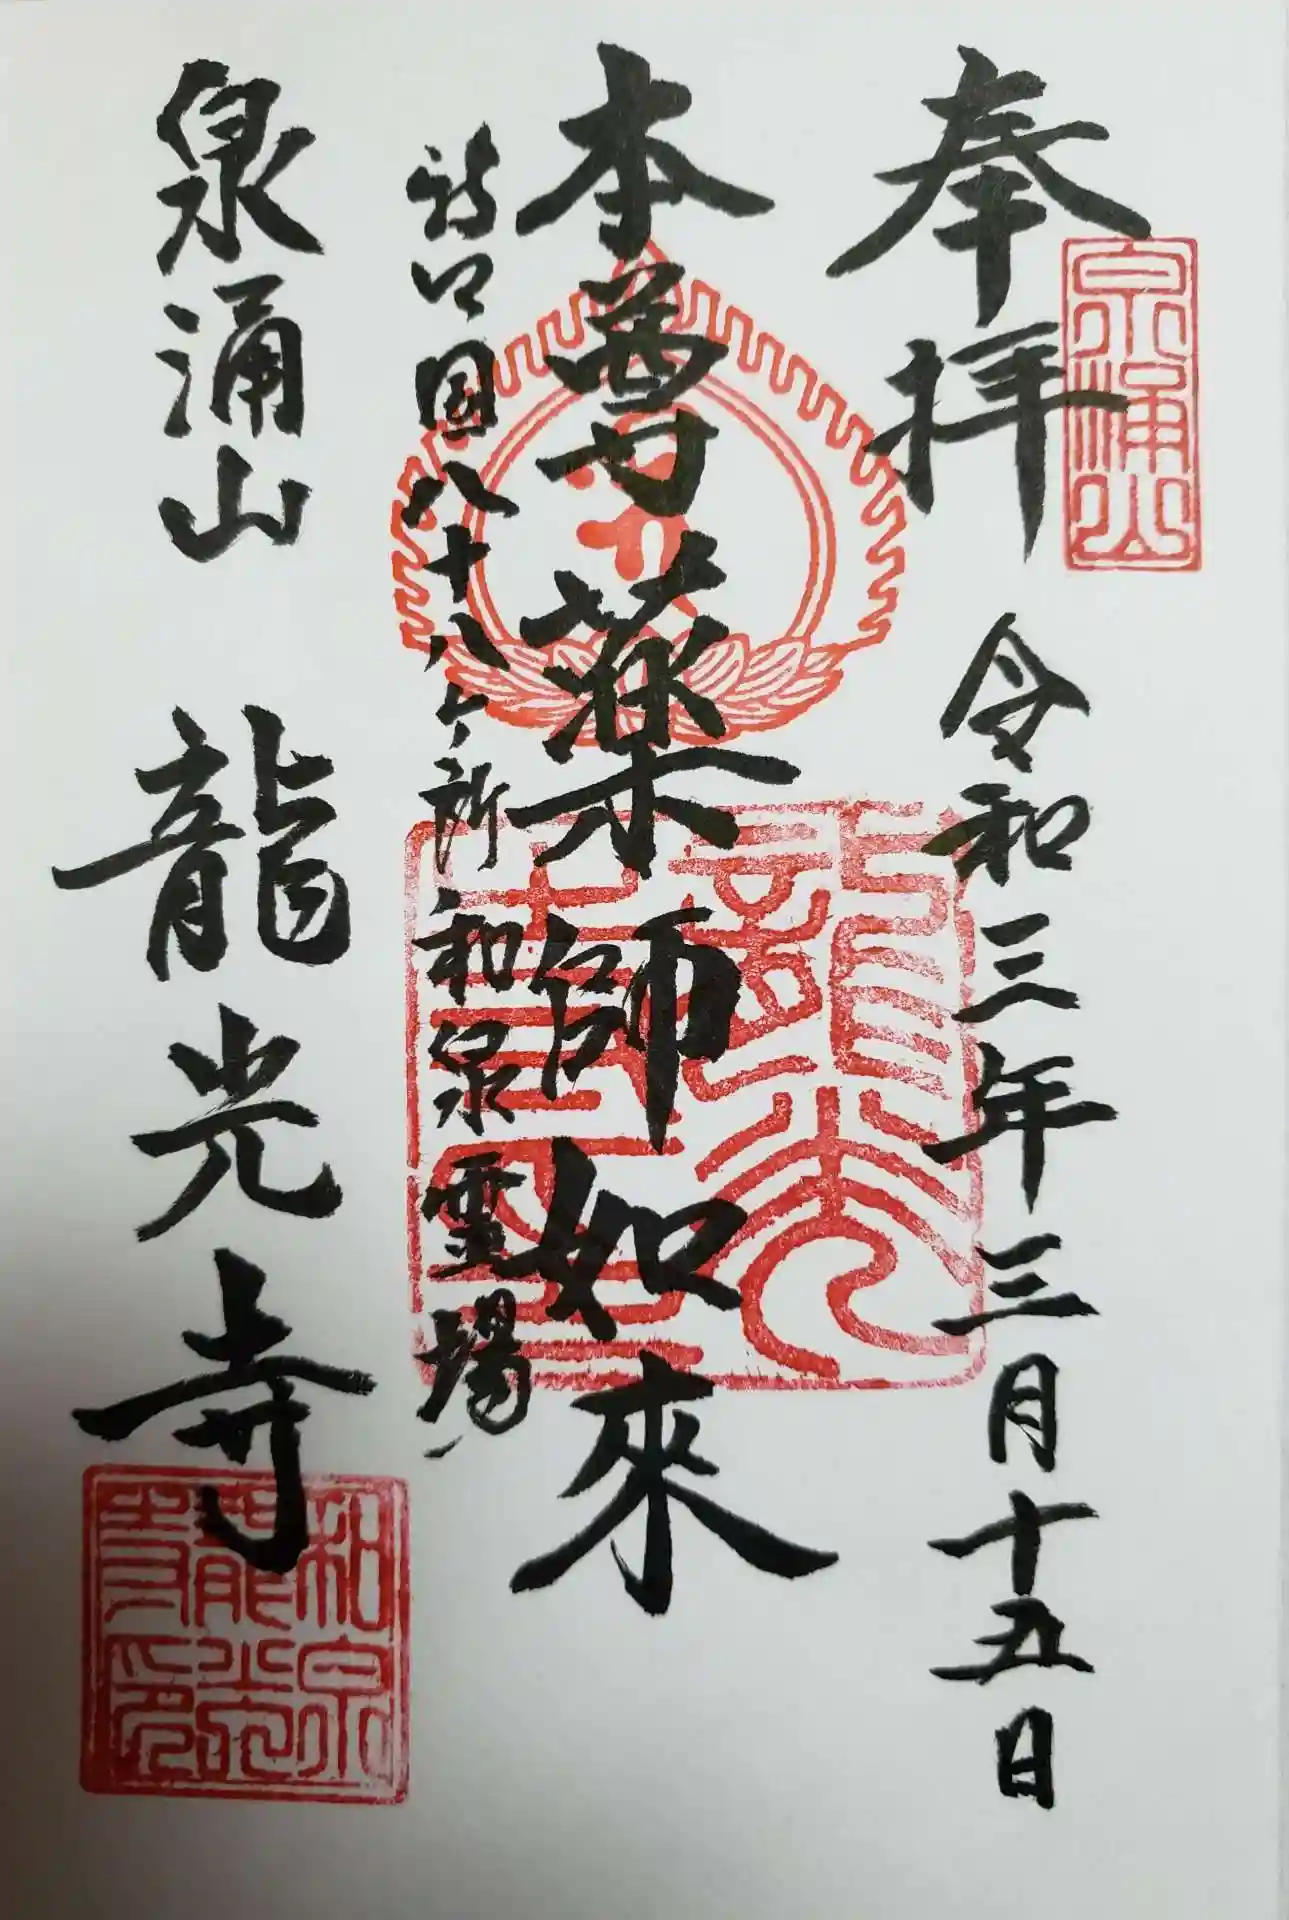 奉拝
令和三年三月十五日
泉涌山
本尊薬師如來
国八十八ヶ所和泉霊場
泉涌山 龍光寺
龍光
和泉
龍光
寺印